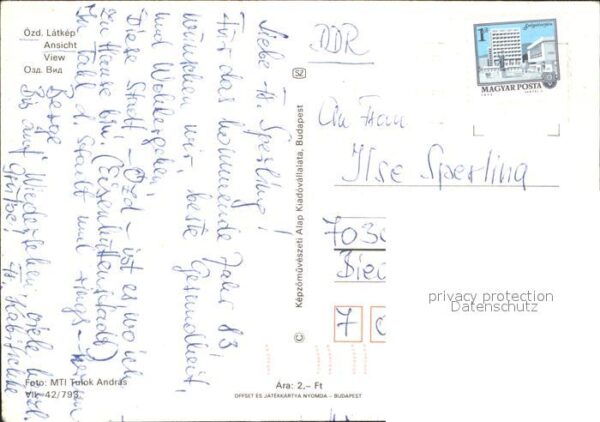 Özd. Látkép
Ansicht
View
Озд. Вид
Liebe Fr. Sperling!
Für das kommende Jahr 83
wünschen wir beste Gesundheit
und Wohlergehen.
Diese Stadt - Ózd - ist es wo ich
zu Hause bin. (Eisenhüttenstadt)
Im Tal d. Stadt und rings
Berge
Bis auf Wiedersehen viele
Grüße!
Foto: MTI Tulok András
VII- 42/793
Képzőművészeti Alap Kiadóvállalata, Budapest
SZ
Ára: 2,– Ft
OFFSET ÉS JÁTÉKKÁRTYA NYOMDA – BUDAPEST
DDR
1 Ft
MAGYAR POSTA
An Frau
Ilse Sperling
703
7
privacy protection
Datenschutz